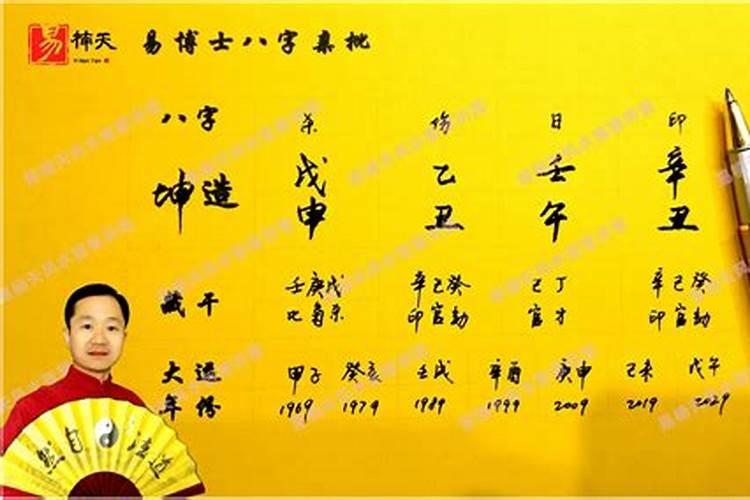 易楠天 易博士八字集批
Yi Nan Tian
八字 杀 伤 日 印
坤造 戊 乙 壬 辛
申 丑 午 丑
藏干 壬庚戊 辛己癸 己丁 辛己癸
比枭杀 印官劫 官才 印官劫
大运 甲子 癸亥 壬戌 辛酉 庚申 己未 戊午
年份 1969 1979 1989 1999 2009 2019 2029
道法自然